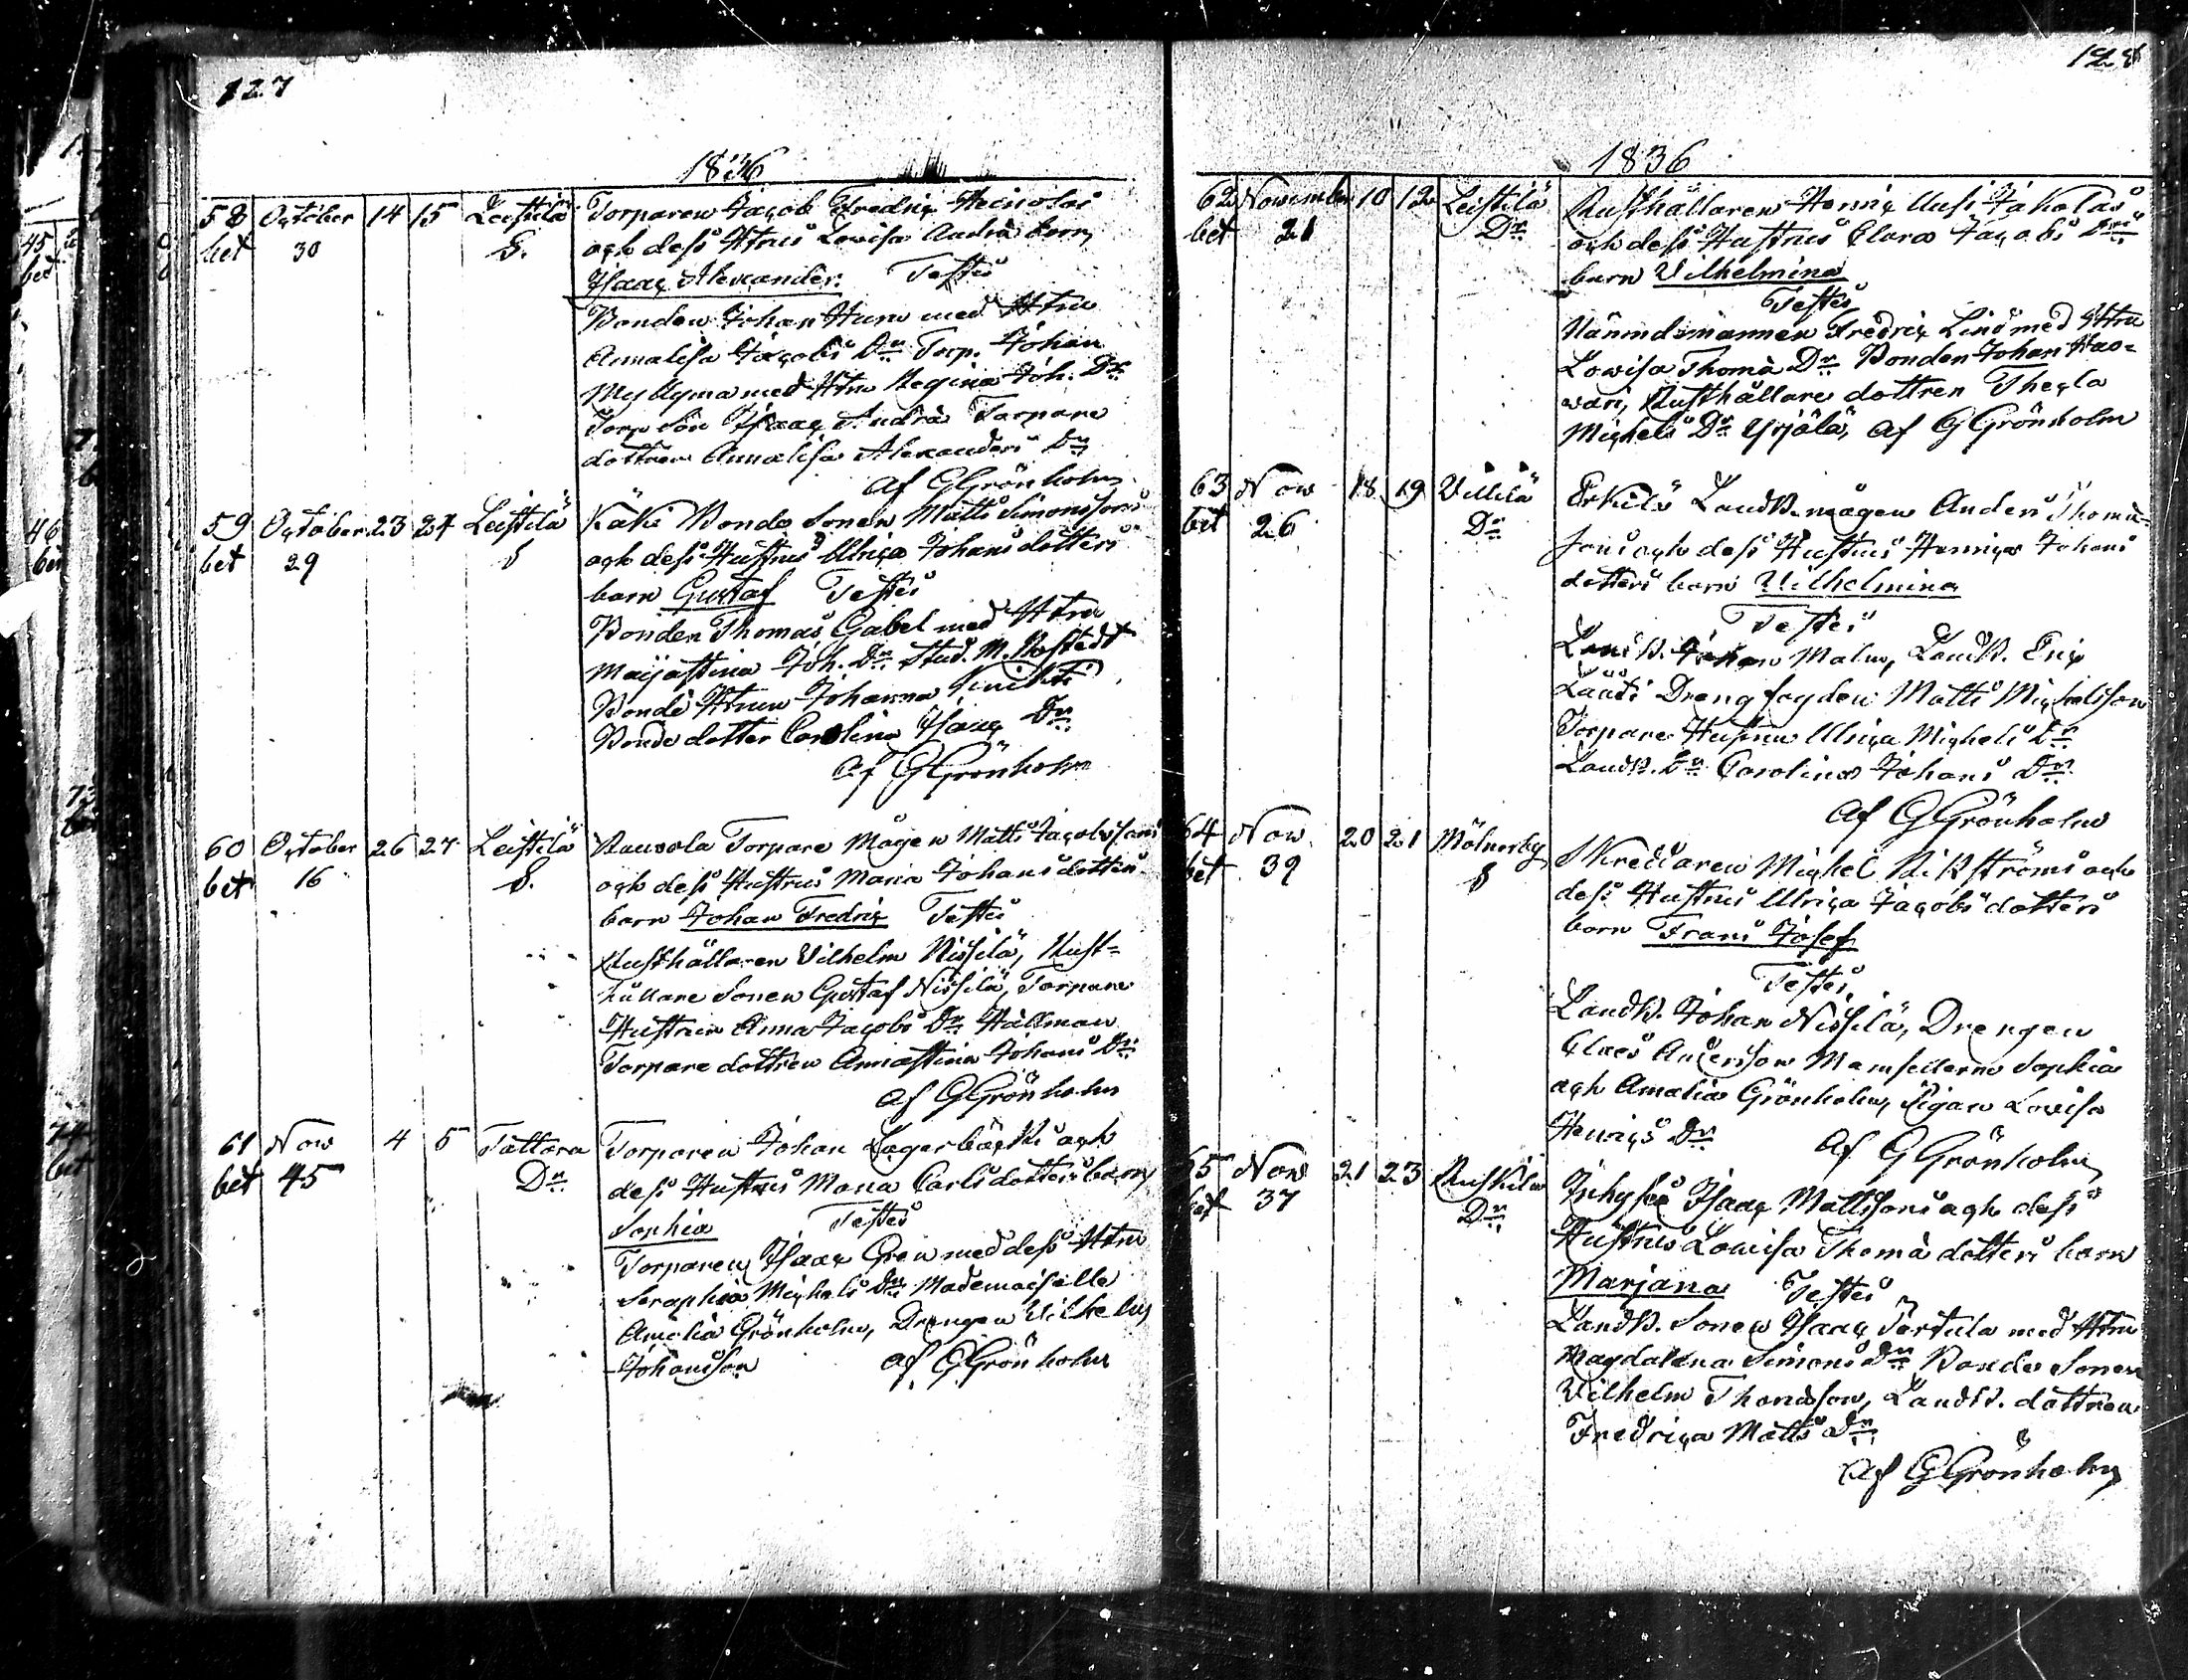 127
1836
58 October 14 15 Leistilä Torparen Jacob Fredric Heinolas
bet 30 S. och dess Htrus Lovisa Andrä barn
Isaac Alexander. Testes
Bonden Johan Hurw med Htru
Annalisa Jacobs Dr Torp. Johan
Myllyma med Htru Regina Joh. Dr
Torp Son Isaac Andrä Torpare
dottren Annalisa Alexanders Dr
af G Grönholm
59 October 23 24 Leistilä Käki Bonde Sonen Matts Simonssons
bet 29 S och dess Hustrus Ulrica Johans dotters
barn Gustaf Testes
Bonden Thomas Gabel med Htru
Maijastina Joh. Dr Stud. M. Rostedt
Bonde Htrun Johanna
Bonde dotter Carolina Isaac Dr
af G Grönholm
60 October 26 27 Leistilä Torpare Mågen Matts Jacobssons
bet 16 S. och dess Hustrus Maria Johans dotters
barn Johan Fredric Testes
Rusthållaren Vilhelm Nissilä, Rust-
hållare Sonen Gustaf Nissilä, Torpare
Hustrun Anna Jacobs Dr Hällman
Torpare dottren Annastina Johans Dr
af G Grönholm
61 Nov 4 5 Tattara Torparen Johan Lagerbäcks och
bet 45 Dr dess Hustrus Maria Carls dotters barn
Sophia Testes
Torparen Isaac Gren med dess Htru
Seraphia Michels Dr Mademoiselle
Amalia Grönholm, Drengen Vilhelm
Johansson af G Grönholm
128
1836
62 November 10 12 Leistilä Rusthållaren Henric Uusi Jakolas
bet 21 Dr och dess Hustrus Clara Jacobs Drs
barn Vilhelmina
Testes
Nämndemannen Fredric Lind med Htru
Lovisa Thomä Dr Bonden Johan Hao-
wari, Rusthållare dottren Thecla
Michels Dr Yrjölä, af G Grönholm
63 Nov 18 19 Villilä Erkilä Landb. mågen Anders Thomä-
bet 26 Dr sons och dess Hustrus Henrica Johans
dotters barn Vilhelmina
Testes
Landb. Johan Malm, Landb. Eric
Drengfogden Matts Michelsson
Torpare Hustrun Ulrica Michels Dr
Landb. Dr Carolina Johans Dr
af G Grönholm
64 Nov. 20 21 Mölnerby Skreddaren Michel Vikströms och
bet 39 S dess Hustrus Ulrica Jacobs dotters
barn Frans Josef
Testes
Landb. Johan Nissilä, Drengen
Claes Andersson Mamsellerne Sophia
och Amalia Grönholm, Pigan Lovisa
Henrics Dr af G Grönholm
65 Nov 21 23 Ruskila Isaac Mattssons och dess
bet 37 Dr Hustrus Lovisa Thomä dotters barn
Marjana Testes
Landb. Sonen Isaac Törtula med Htru
Magdalena Simons Dr Bonde Sonen
Vilhelm Thomasson, Landb. dottren
Fredrica Matts Dr
af G Grönholm
45
bet
46
bet